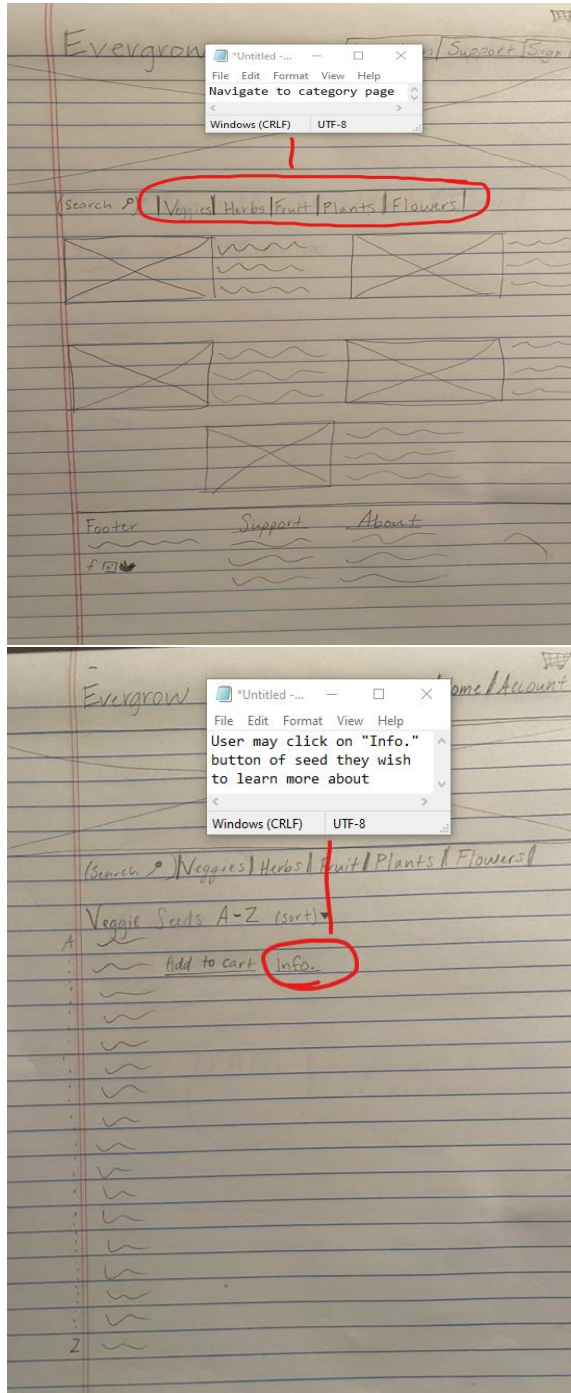 Evergrow
Support | Sign
*Untitled -...
File Edit Format View Help
Navigate to category page
Windows (CRLF) UTF-8
(Search | Veggies | Herbs | Fruit | Plants | Flowers |
Footer Support About
f
Evergrow
ome / Account
*Untitled -...
File Edit Format View Help
User may click on "Info."
button of seed they wish
to learn more about
Windows (CRLF) UTF-8
(Search ) Veggies | Herbs | Fruit | Plants | Flowers |
Veggie Seeds A-Z (sort)
A
Add to cart Info.
Z